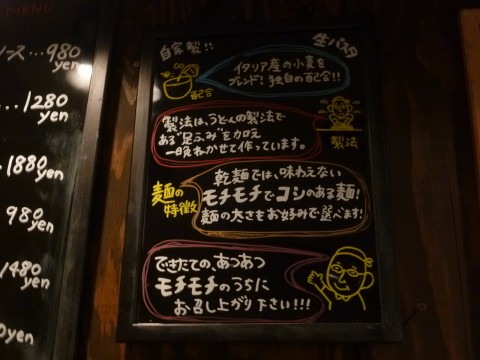 MENU
ース…980
yen
…1280
yen
1880
yen
980
yen
1480
yen
0yen
自家製!! 生パスタ
イタリア産の小麦を
ブレンド!独自の配合!!
配合
製法は、うどんの製法で
ある"足ふみ"を加え
一晩ねかせて作っています。
製法
乾麺では、味わえない
モチモチでコシのある麺!
麺の太さもお好みで選べます!
麺の
特徴
できたての、あつあつ
モチモチのうちに
お召し上がり下さい!!!